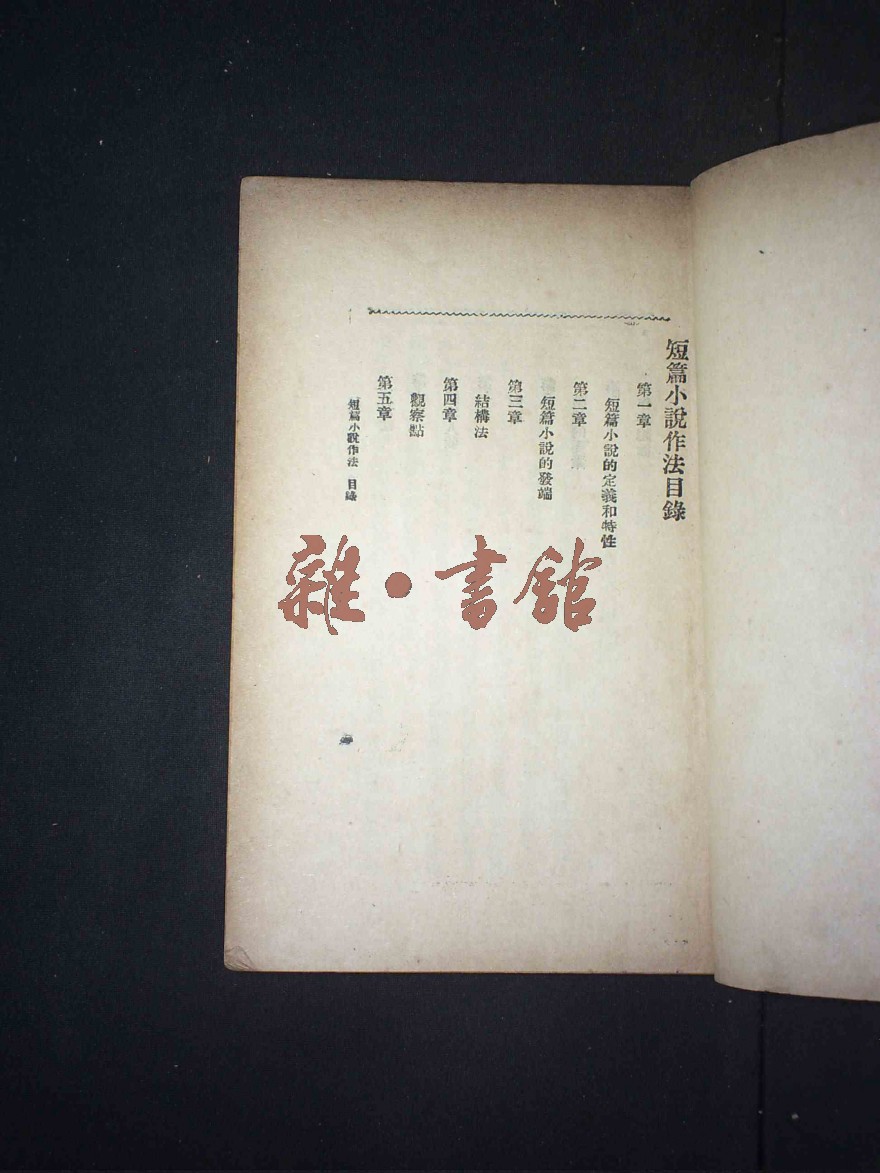 短篇小說作法目錄
第一章
短篇小說的定義和特性
第二章
短篇小說的發端
第三章
結構法
第四章
觀察點
第五章
短篇小說作法 目錄
雜·書館